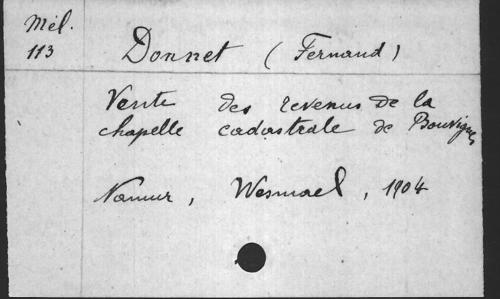 Mél.
113
Donnet (Fernand)
Vente des revenus de la
chapelle cadastrale de Bouvignes
Namur, Wesmael, 1904